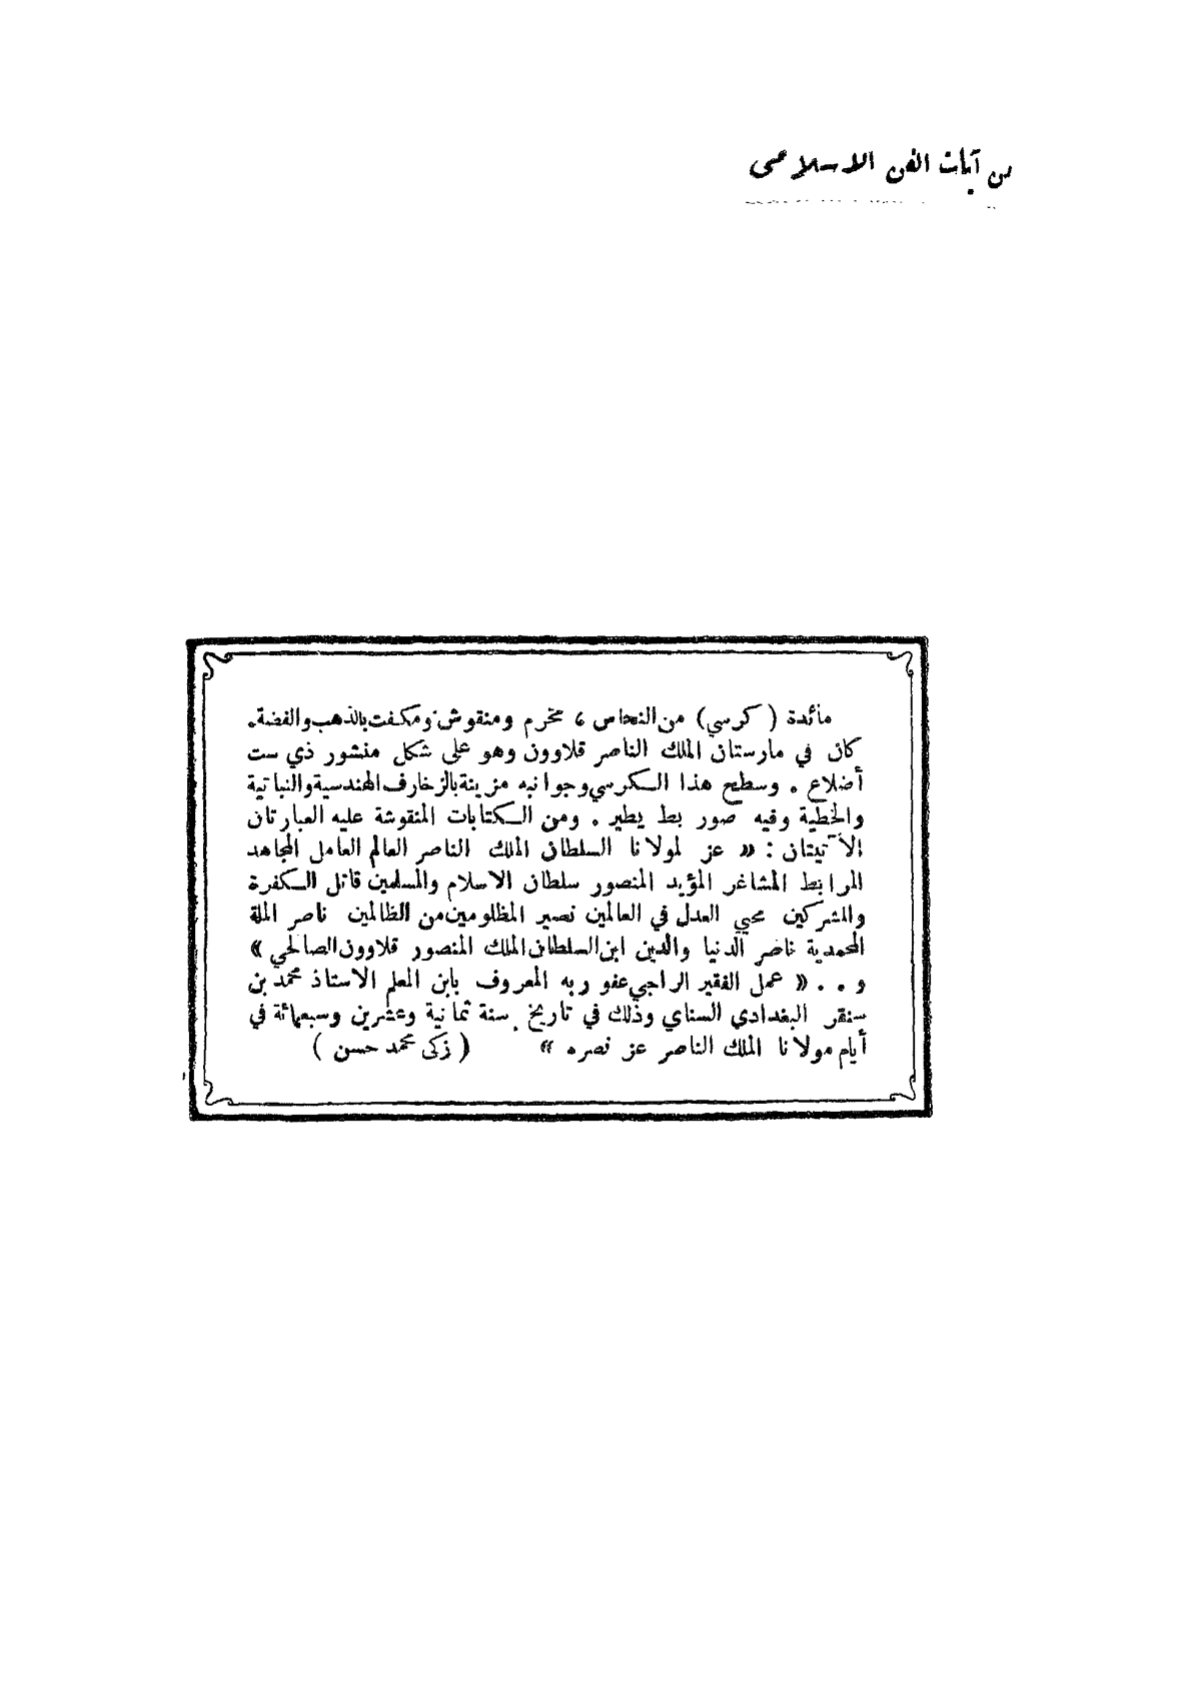 من آيات الفن الاسلامى
مائدة ( كرسي ) من النحاس ، مخرم ومنقوش ومكفت بالذهب والفضة .
كان في مارستان الملك الناصر قلاوون وهو على شكل منشور ذي ست
أضلاع . وسطح هذا الكرسي وجوانبه مزينة بالزخارف الهندسية والنباتية
والخطية وفيه صور بط يطير . ومن الكتابات المنقوشة عليه العبارتان
الآتيتان : « عز لمولانا السلطان الملك الناصر العالم العامل المجاهد
المرابط المشاغر المؤيد المنصور سلطان الاسلام والمسلمين قاتل الكفرة
والمشركين محيي العدل في العالمين نصير المظلومين من الظالمين ناصر الملة
المحمدية ناصر الدنيا والدين ابن السلطان الملك المنصور قلاوون الصالحي »
و . . « عمل الفقير الراجي عفو ربه المعروف بابن المعلم الاستاذ محمد بن
سنقر البغدادي السناي وذلك في تاريخ سنة ثمانية وعشرين وسبعمائة في
أيام مولانا الملك الناصر عز نصره » ( زكى محمد حسن )